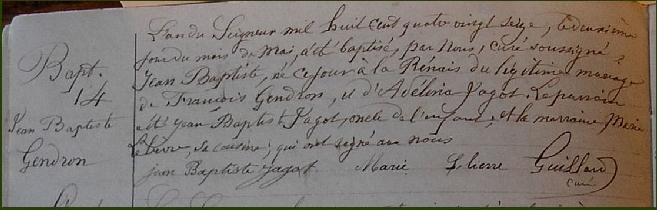 L'an du Seigneur mil huit cent quatre vingt seize, le deuxième
jour du mois de Mai, a été baptisé, par Nous, curé soussigné
Bapt.
14
Jean Baptiste
Gendron
Jean Baptiste, né ce jour à la Renais du légitime mariage
de Francois Gendron, et d'Adelina Jagot. Le parrain
a été Jean Baptiste Jagot, oncle de l'enfant, et la marraine, Marie
sa cousine; qui ont signé avec nous
Jean Baptiste Jagot Marie Guillard
curé